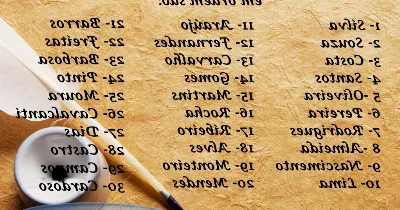 em ordem são:
1- Silva
2- Souza
3- Costa
4- Santos
5- Oliveira
6- Pereira
7- Rodrigues
8- Almeida
9- Nascimento
10- Lima
11- Araújo
12- Fernandes
13- Carvalho
14- Gomes
15- Martins
16- Rocha
17- Ribeiro
18- Alves
19- Monteiro
20- Mendes
21- Barros
22- Freitas
23- Barbosa
24- Pinto
25- Moura
26- Cavalcanti
27- Dias
28- Castro
29- Campos
30- Cardoso